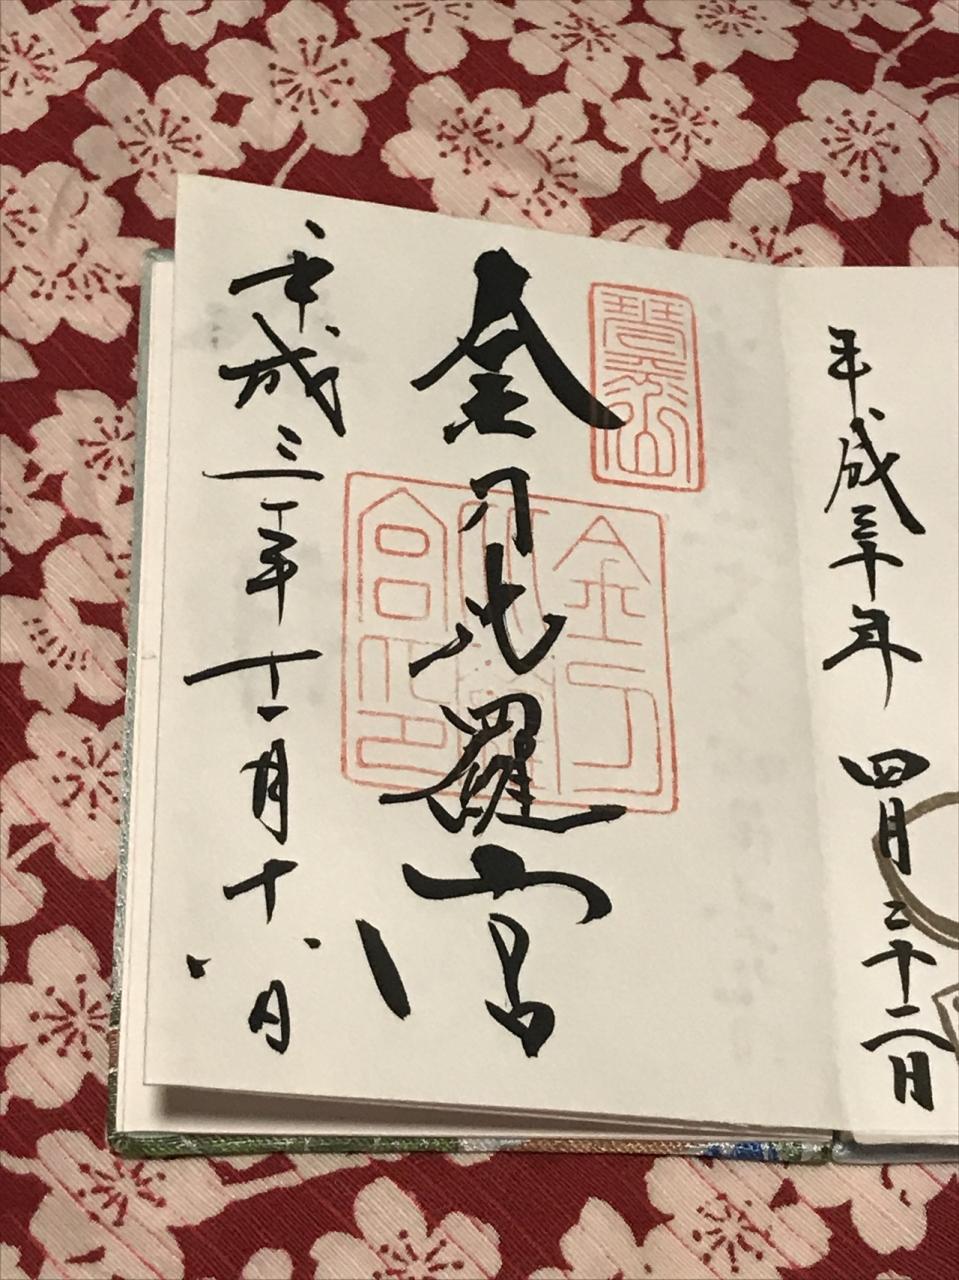 平成三十年 四月二十二日
琴平山
金刀比羅宮
金刀比羅宮印
平成三十年十一月十八日